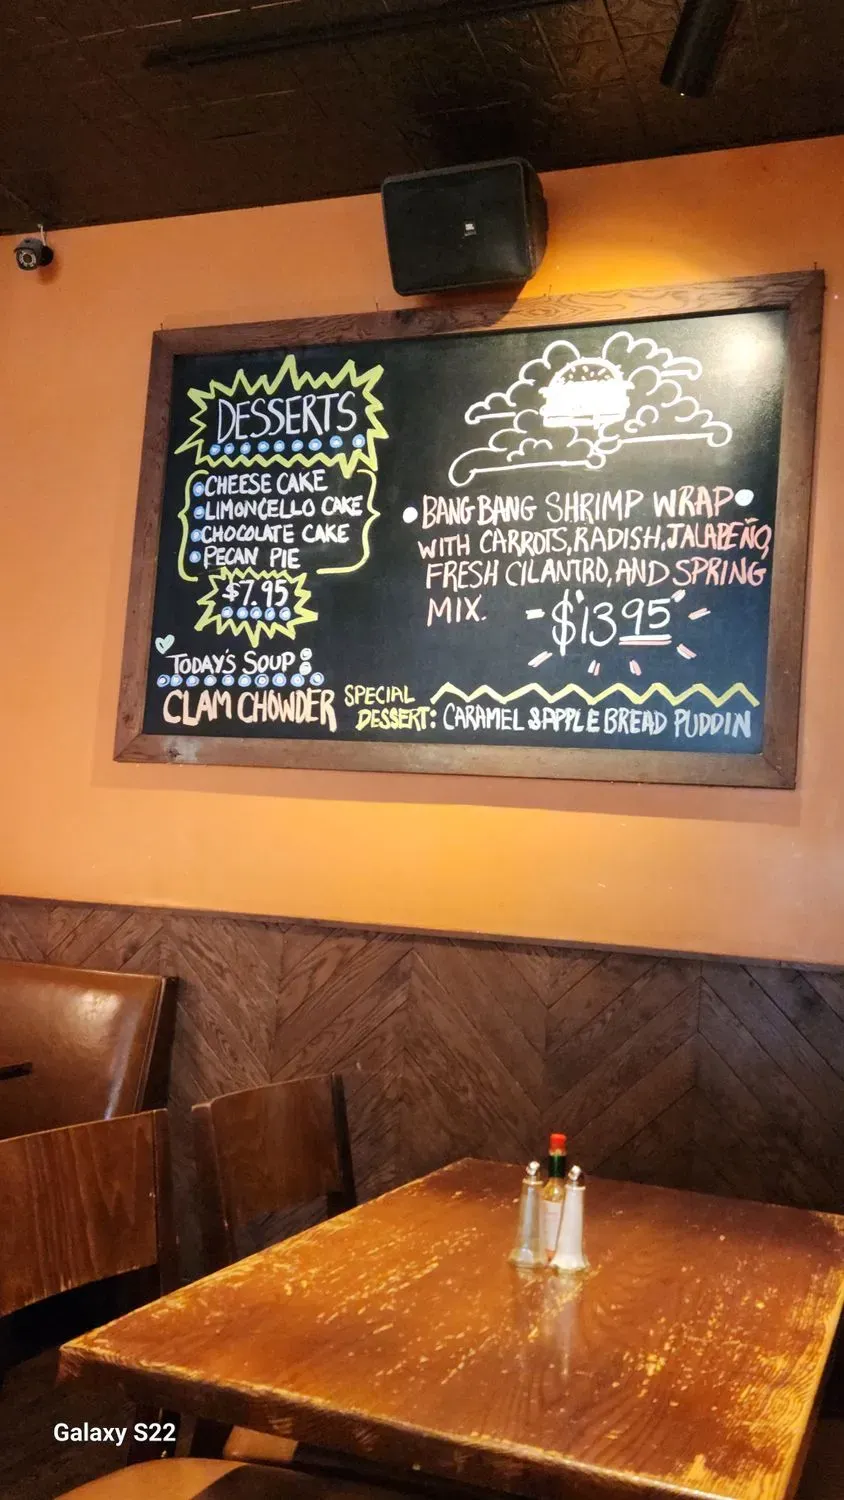 DESSERTS
CHEESE CAKE
LIMONCELLO CAKE
CHOCOLATE CAKE
PECAN PIE
$7.95
TODAY'S SOUP:
CLAM CHOWDER
BANG BANG SHRIMP WRAP
WITH CARROTS, RADISH, JALAPEÑO,
FRESH CILANTRO, AND SPRING
MIX. $13.95
SPECIAL
DESSERT: CARAMEL & APPLE BREAD PUDDIN
JBL
Galaxy S22